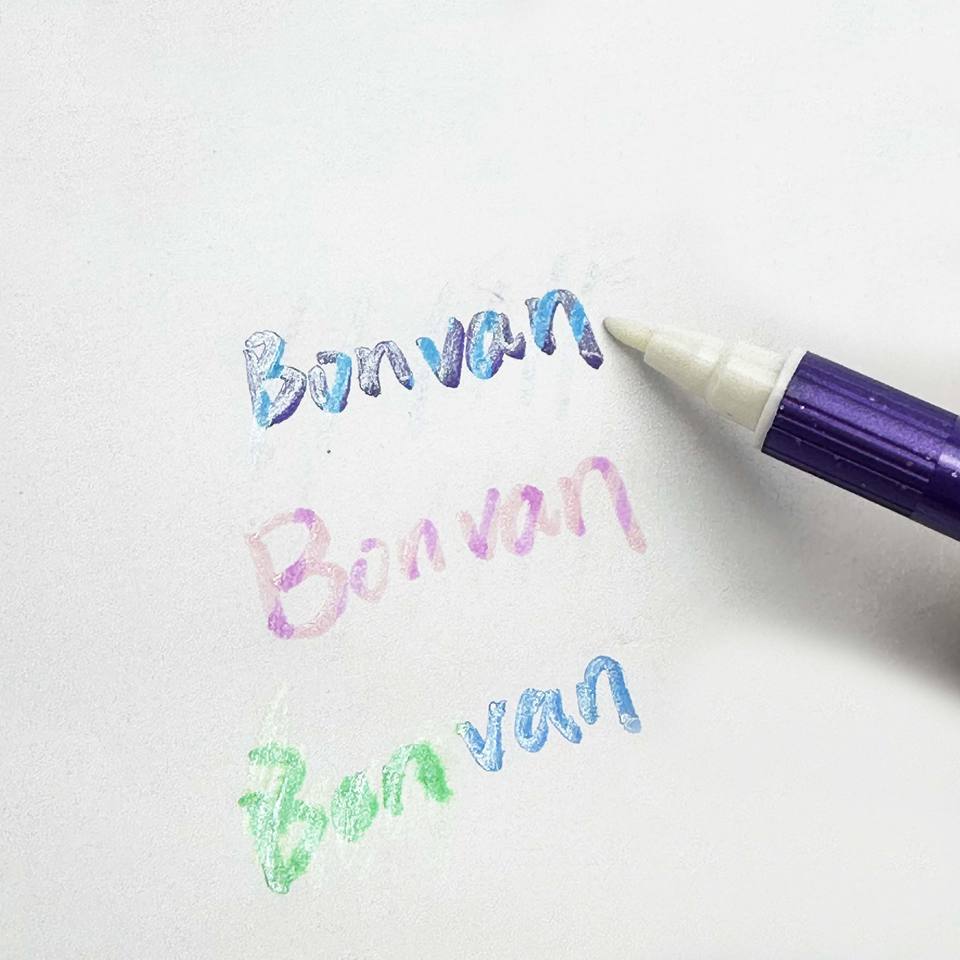 Bonvan
Bonvan
Bonvan